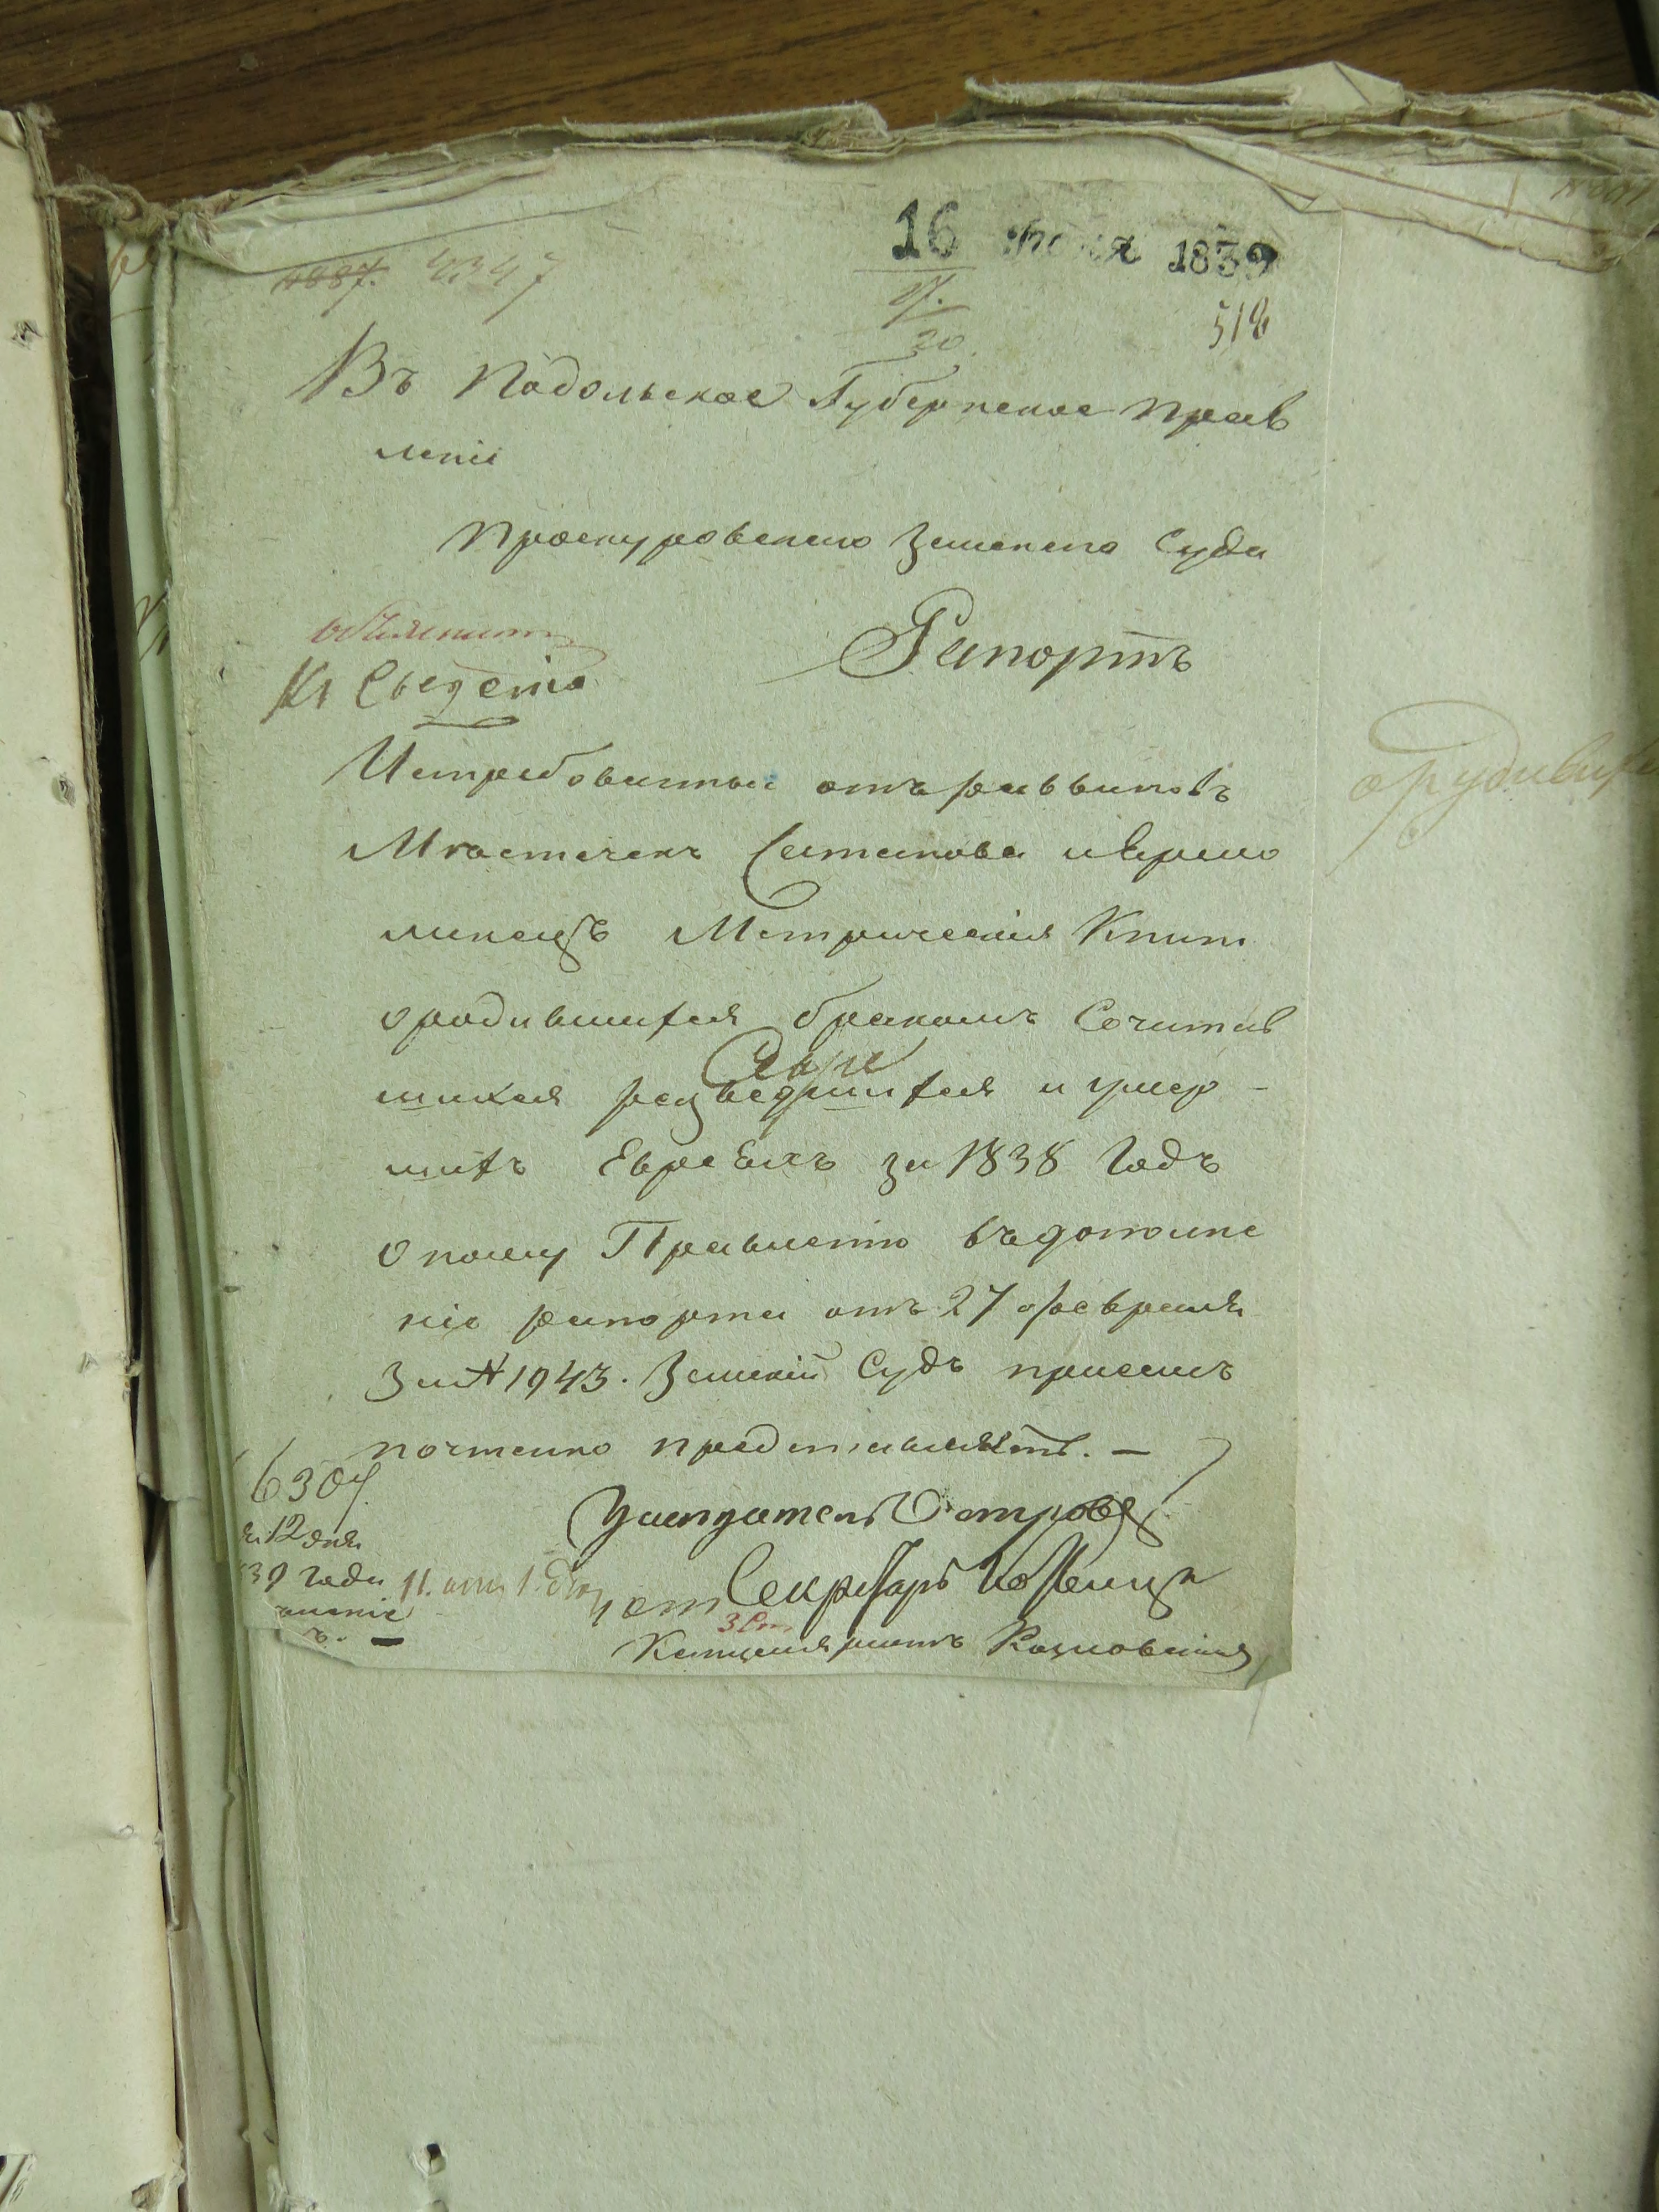 16 июня 1839
4887. 4347
17.
20.
518
Въ Подольское Губернское Прав
леніе
Проскуровскаго Земскаго Суда
Рапортъ
Къ Сведенію
Истребованныя отъ раввиновъ
Мѣстечекъ Сатанова и Ярмо
линецъ Метрическія Книги
о родившихся бракомъ Сочетав
шихся разведшихся и умер-
шихъ Евреяхъ за 1838 Годъ
Оному Правленію въ дополне
ніе рапорта отъ 27 февраля
За № 1943. Земскій Судъ при семъ
почтенно представляетъ. —
6307.
12 дня
39 Года
Заседатель Петровъ
Секретарь
Канцеляристъ Козловскій